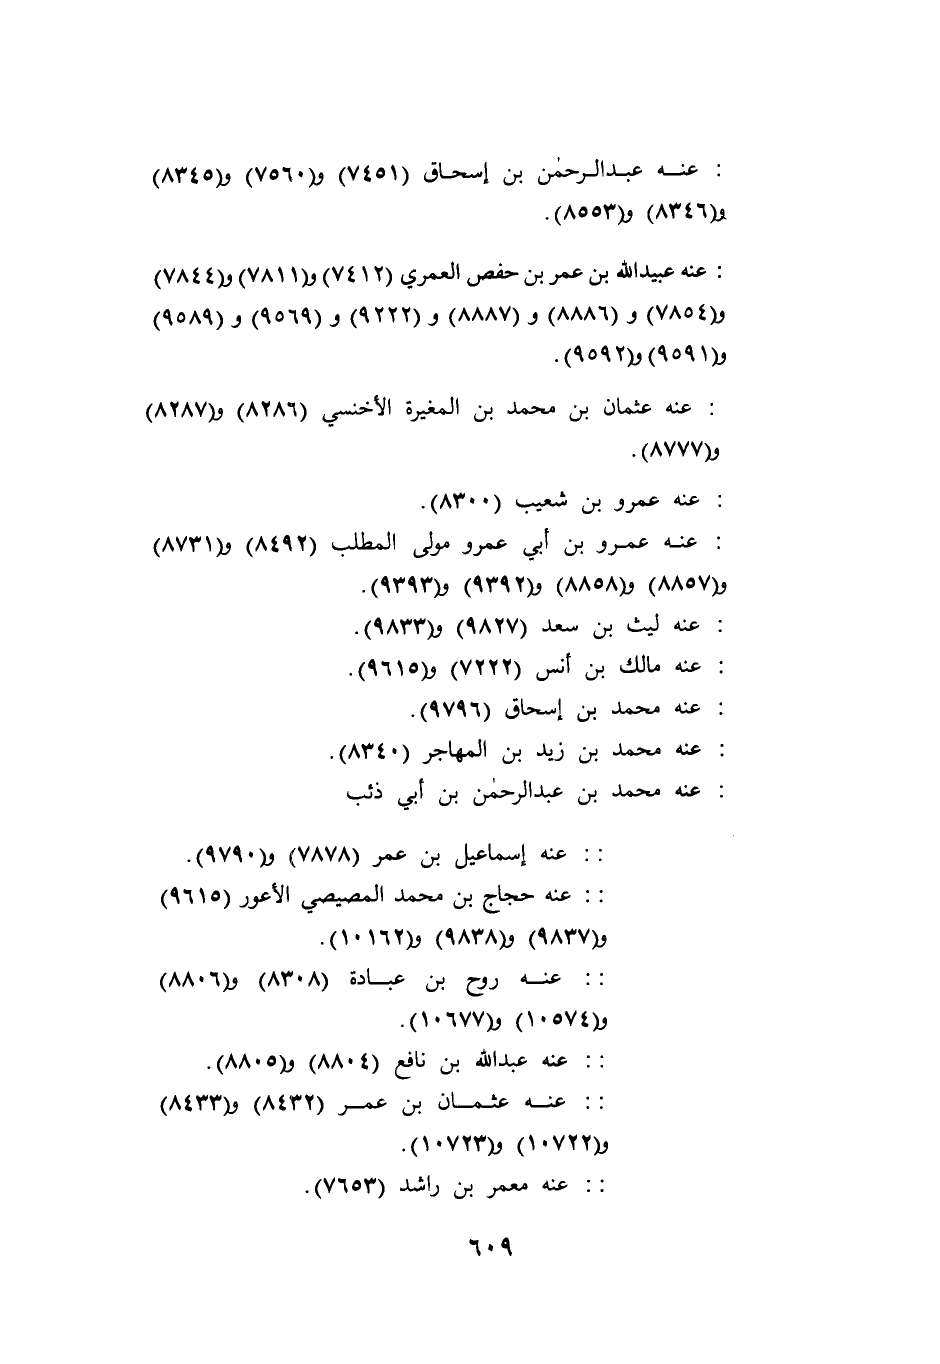 : عنـــه عبـدالـرحمٰن بن إسحـاق (٧٤٥١) و(٧٥٦٠) و(٨٣٤٥)
و(٨٣٤٦) و(٨٥٥٣).
: عنه عبيدالله بن عمر بن حفص العمري (٧٤١٢) و(٧٨١١) و(٧٨٤٤)
و(٧٨٥٤) و (٨٨٨٦) و (٨٨٨٧) و (٩٢٢٢) و (٩٥٦٩) و (٩٥٨٩)
و(٩٥٩١) و(٩٥٩٢).
: عنه عثمان بن محمد بن المغيرة الأخنسي (٨٢٨٦) و(٨٢٨٧)
و(٨٧٧٧).
: عنه عمرو بن شعيب (٨٣٠٠).
: عنـه عمـرو بن أبي عمرو مولى المطلب (٨٤٩٢) و(٨٧٣١)
و(٨٨٥٧) و(٨٨٥٨) و(٩٣٩٢) و(٩٣٩٣).
: عنه ليث بن سعد (٩٨٢٧) و(٩٨٣٣).
: عنه مالك بن أنس (٧٢٢٢) و(٩٦١٥).
: عنه محمد بن إسحاق (٩٧٩٦).
: عنه محمد بن زيد بن المهاجر (٨٣٤٠).
: عنه محمد بن عبدالرحمٰن بن أبي ذئب
: : عنه إسماعيل بن عمر (٧٨٧٨) و(٩٧٩٠).
: : عنه حجاج بن محمد المصيصي الأعور (٩٦١٥)
و(٩٨٣٧) و(٩٨٣٨) و(١٠١٦٢).
: : عنـــه روح بن عبـــادة (٨٣٠٨) و(٨٨٠٦)
و(١٠٥٧٤) و(١٠٦٧٧).
: : عنه عبدالله بن نافع (٨٨٠٤) و(٨٨٠٥).
: : عنـــه عثـمـــان بن عمـــر (٨٤٣٢) و(٨٤٣٣)
و(١٠٧٢٢) و(١٠٧٢٣).
: : عنه معمر بن راشد (٧٦٥٣).
٦٠٩